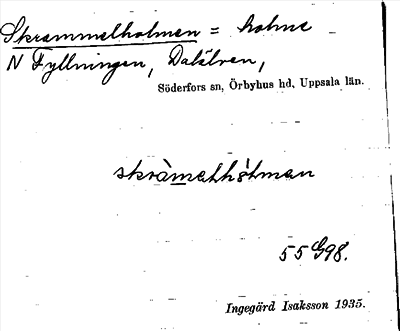 Skrammelholmen = holme
N Fyllningen, Dalälven,
Söderfors sn, Örbyhus hd, Uppsala län.
skràmelhòlman
55 G98.
Ingegärd Isaksson 1935.